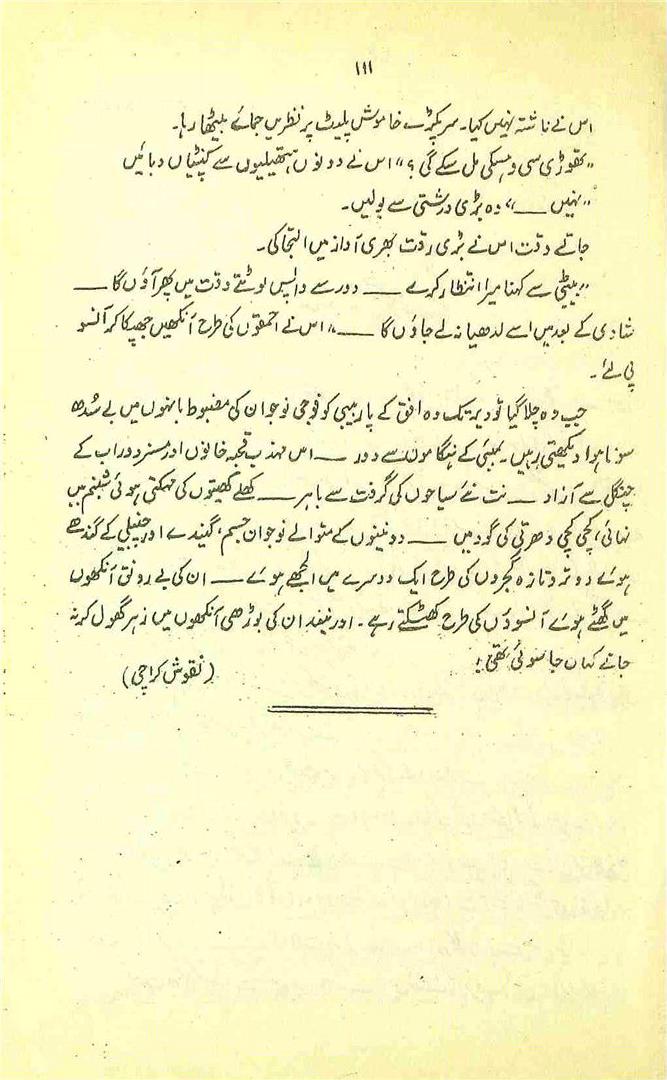 ۱۱۱
اس نے ناشتہ نہیں کیا۔ سر پکڑے خاموش پلیٹ پر نظریں جمائے بیٹھا رہا۔
”تھوڑی سی وہسکی مل سکے گی؟“ اس نے دونوں ہتھیلیوں سے کنپٹیاں دبائیں
”نہیں ——“ وہ بڑی درشتی سے بولیں۔
جاتے وقت اس نے بڑی رقت بھری آواز میں التجا کی۔
”بیٹی سے کہنا میرا انتظار کرے —— دورے سے واپس لوٹتے وقت میں پھر آؤں گا ——
شادی کے بعد میں اسے لدھیانہ لے جاؤں گا ——“ اس نے احمقوں کی طرح آنکھیں جھپکا کر آنسو
پی لئے۔
جب وہ چلا گیا تو دیر تک وہ افق کے پار بیبی کو فوجی نوجوان کی مضبوط بانہوں میں بے سُدھ
سوتا ہوا دیکھتی رہیں۔ بمبئی کے ہنگاموں سے دور —— اس مہذب قحبہ خانوں اور مسنر دوراب کے
چنگل سے آزاد —— نت نئے سیاحوں کی گرفت سے باہر —— کھلے کھیتوں کی مہکتی ہوئی شبنم میں
نہائی، کچی کچی دھرتی کی گود میں —— دو نینوں کے متوالے نوجوان جسم، گیندے اور چنبیلی کے گندھے
ہوئے دو تر و تازہ گجروں کی طرح ایک دوسرے میں الجھے ہوئے —— ان کی بے رونق آنکھوں
میں گھٹے ہوئے آنسوؤں کی طرح کھٹکتے رہے۔ اور نیند ان کی بوڑھی آنکھوں میں زہر گھول کر نہ
جانے کہاں جا سوئی تھی!
(نقوش کراچی)